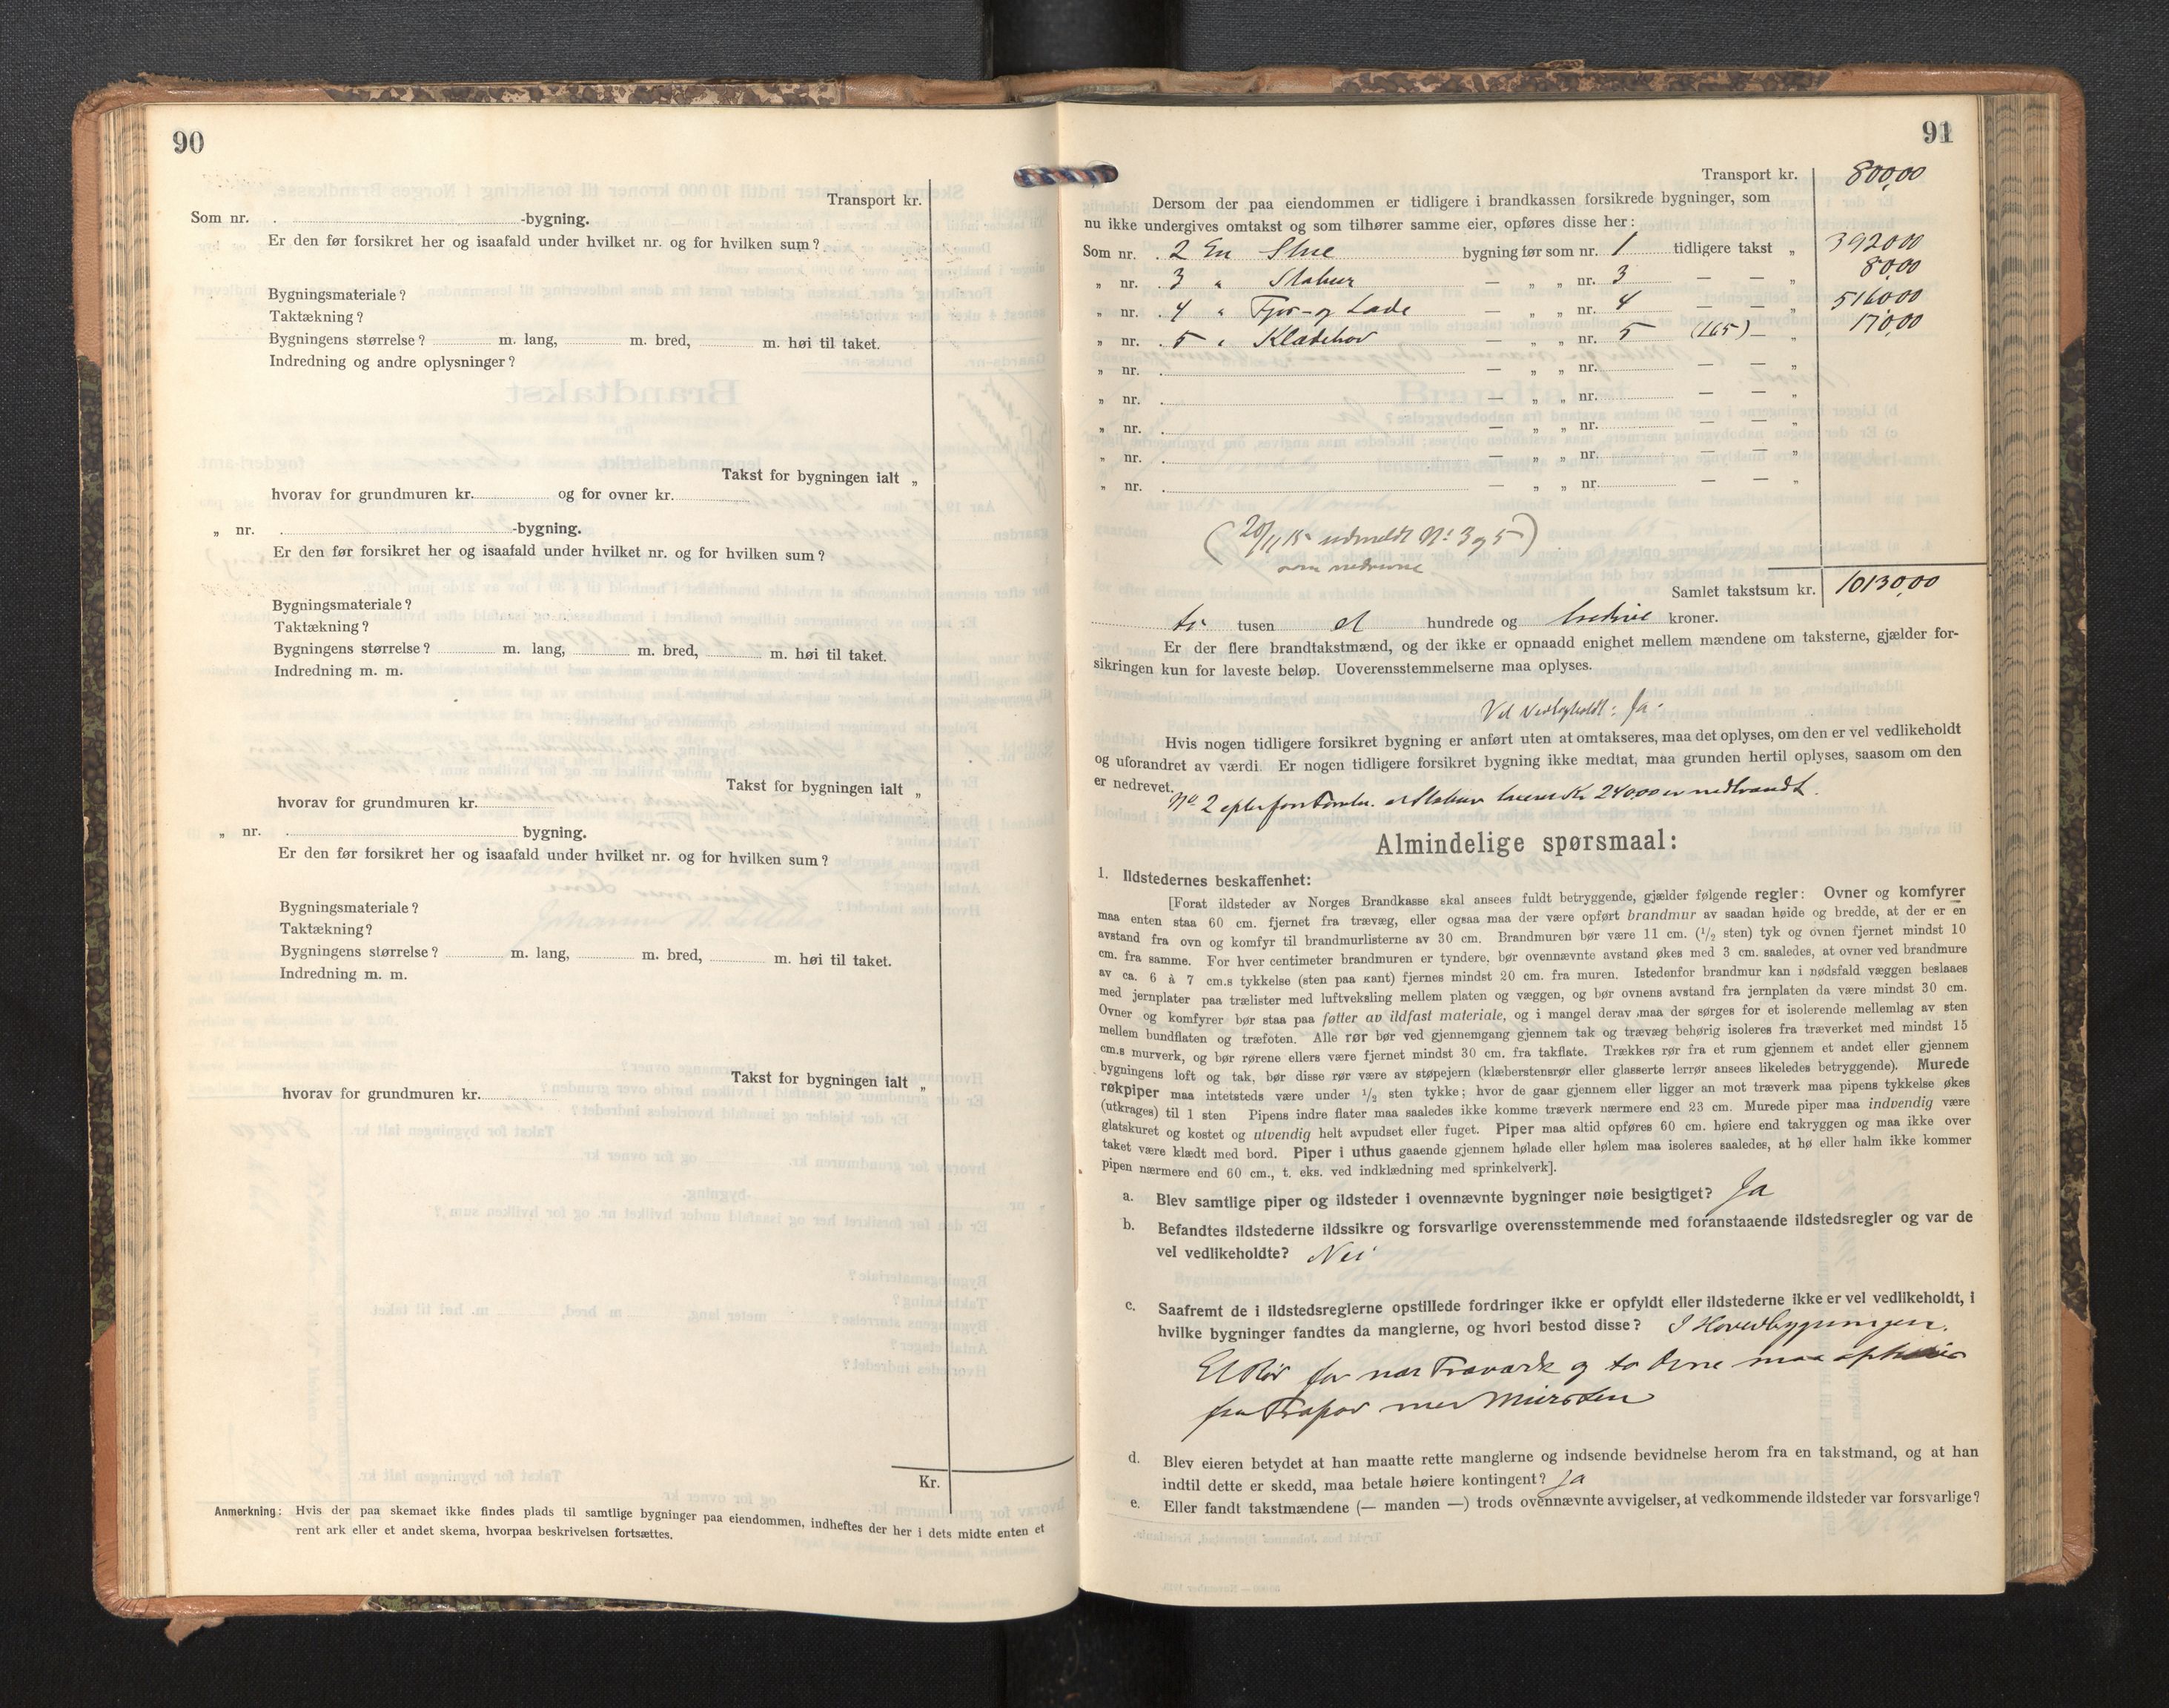 90
Transport kr.
Som nr. . -bygning.
Er den før forsikret her og isaafald under hvilket nr. og for hvilken sum?
Bygningsmateriale?
Taktækning?
Bygningens størrelse? m. lang, m. bred, m. høi til taket.
Indredning og andre oplysninger?
Takst for bygningen ialt „
hvorav for grundmuren kr. og for ovner kr.
„ nr. . -bygning.
Er den før forsikret her og isaafald under hvilket nr. og for hvilken sum?
Bygningsmateriale?
Taktækning?
Bygningens størrelse? m. lang, m. bred, m. høi til taket.
Indredning m. m.
Takst for bygningen ialt „
hvorav for grundmuren kr.
„ nr. . bygning.
Er den før forsikret her og isaafald under hvilket nr. og for hvilken sum?
Bygningsmateriale?
Taktækning?
Bygningens størrelse? m. lang, m. bred, m. høi til taket.
Indredning m. m.
Takst for bygningen ialt „
hvorav for grundmuren kr.
Kr.
Anmerkning: Hvis der paa skemaet ikke findes plads til samtlige bygninger paa eiendommen, indheftes der her i dets midte enten et
rent ark eller et andet skema, hvorpaa beskrivelsen fortsættes.
91
Transport kr. 800,00
Dersom der paa eiendommen er tidligere i brandkassen forsikrede bygninger, som
nu ikke undergives omtakst og som tilhører samme eier, opføres disse her:
Som nr. . 2 En Stue bygning før som nr. 1 tidligere takst „ 3920,00
„ nr. . 3 „ Stabur — „ „ nr. 3 — — „ 80,00
„ nr. . 4 „ Fjøs- og Lade — „ „ nr. 4 — — „ 5160,00
„ nr. . 5 „ — „ „ nr. 5 (165) — „ 170,00
„ nr. . — „ „ nr. — — „
„ nr. . — „ „ nr. — — „
„ nr. . — „ „ nr. — — „
„ nr. . — „ „ nr. — — „
„ nr. . — „ „ nr. — — „
(20/11 15 udmeldt No 3 og 5)
som nedrevne
Samlet takstsum kr. 10130,00
ti tusen et hundrede og tredive kroner.
Er der flere brandtakstmænd, og der ikke er opnaadd enighet mellem mændene om taksterne, gjælder for-
sikringen kun for laveste beløp. Uoverensstemmelserne maa oplyses.
Vel Vedligeholdt: Ja.
Hvis nogen tidligere forsikret bygning er anført uten at omtakseres, maa det oplyses, om den er vel vedlikeholdt
og uforandret av værdi. Er nogen tidligere forsikret bygning ikke medtat, maa grunden hertil oplyses, saasom om den
er nedrevet.
No 2 efter forr. et Stabur Kr 240,00 er nedbrandt.
Almindelige spørsmaal:
1. Ildstedernes beskaffenhet:
[Forat ildsteder av Norges Brandkasse skal ansees fuldt betryggende, gjælder følgende regler: Ovner og komfyrer
maa enten staa 60 cm. fjernet fra trævæg, eller ogsaa maa der være opført brandmur av saadan høide og bredde, at der er en
avstand fra ovn og komfyr til brandmurlisterne av 30 cm. Brandmuren bør være 11 cm. (1/2 sten) tyk og ovnen fjernet mindst 10
cm. fra samme. For hver centimeter brandmuren er tyndere, bør ovennævnte avstand økes med 3 cm. saaledes, at ovner ved brandmure
av ca. 6 à 7 cm.s tykkelse (sten paa kant) fjernes mindst 20 cm. fra muren. Istedenfor brandmur kan i nødsfald væggen beslaaes
med jernplater paa trælister med luftveksling mellem platen og væggen, og bør ovnens avstand fra jernplaten da være mindst 30 cm.
Ovner og komfyrer bør staa paa føtter av ildfast materiale, og i mangel derav maa der sørges for et isolerende mellemlag av sten
mellem bundflaten og træfoten. Alle rør bør ved gjennemgang gjennem tak og trævæg behørig isoleres fra træverket med mindst 15
cm.s murverk, og bør rørene ellers være fjernet mindst 30 cm. fra takflate. Trækkes rør fra et rum gjennem et andet eller gjennem
bygningens loft og tak, bør disse rør være av støpejern (klæberstensrør eller glasserte lerrør ansees likeledes betryggende). Murede
røkpiper maa intetsteds være under 1/2 sten tykke; hvor de gaar gjennem eller ligger an mot træverk maa pipens tykkelse økes
(utkrages) til 1 sten Pipens indre flater maa saaledes ikke komme træverk nærmere end 23 cm. Murede piper maa indvendig være
glatskuret og kostet og utvendig helt avpudset eller fuget. Piper maa altid opføres 60 cm. høiere end takryggen og maa ikke over
taket være klædt med bord. Piper i uthus gaaende gjennem hølade eller hølem maa isoleres saaledes, at hø eller halm ikke kommer
pipen nærmere end 60 cm., t. eks. ved indklædning med sprinkelverk].
a. Blev samtlige piper og ildsteder i ovennævnte bygninger nøie besigtiget? Ja
b. Befandtes ildstederne ildssikre og forsvarlige overensstemmende med foranstaaende ildstedsregler og var de
vel vedlikeholdte? Nei
c. Saafremt de i ildstedsreglerne opstillede fordringer ikke er opfyldt eller ildstederne ikke er vel vedlikeholdt, i
hvilke bygninger fandtes da manglerne, og hvori bestod disse? I Hovedbygningen.
Et Rør for nær Træværk og to Ovne maa
fra Træfod med Mursten
d. Blev eieren betydet at han maatte rette manglerne og indsende bevidnelse herom fra en takstmand, og at han
indtil dette er skedd, maa betale høiere kontingent? Ja
e. Eller fandt takstmændene (— manden —) trods ovennævnte avvigelser, at vedkommende ildsteder var forsvarlige?